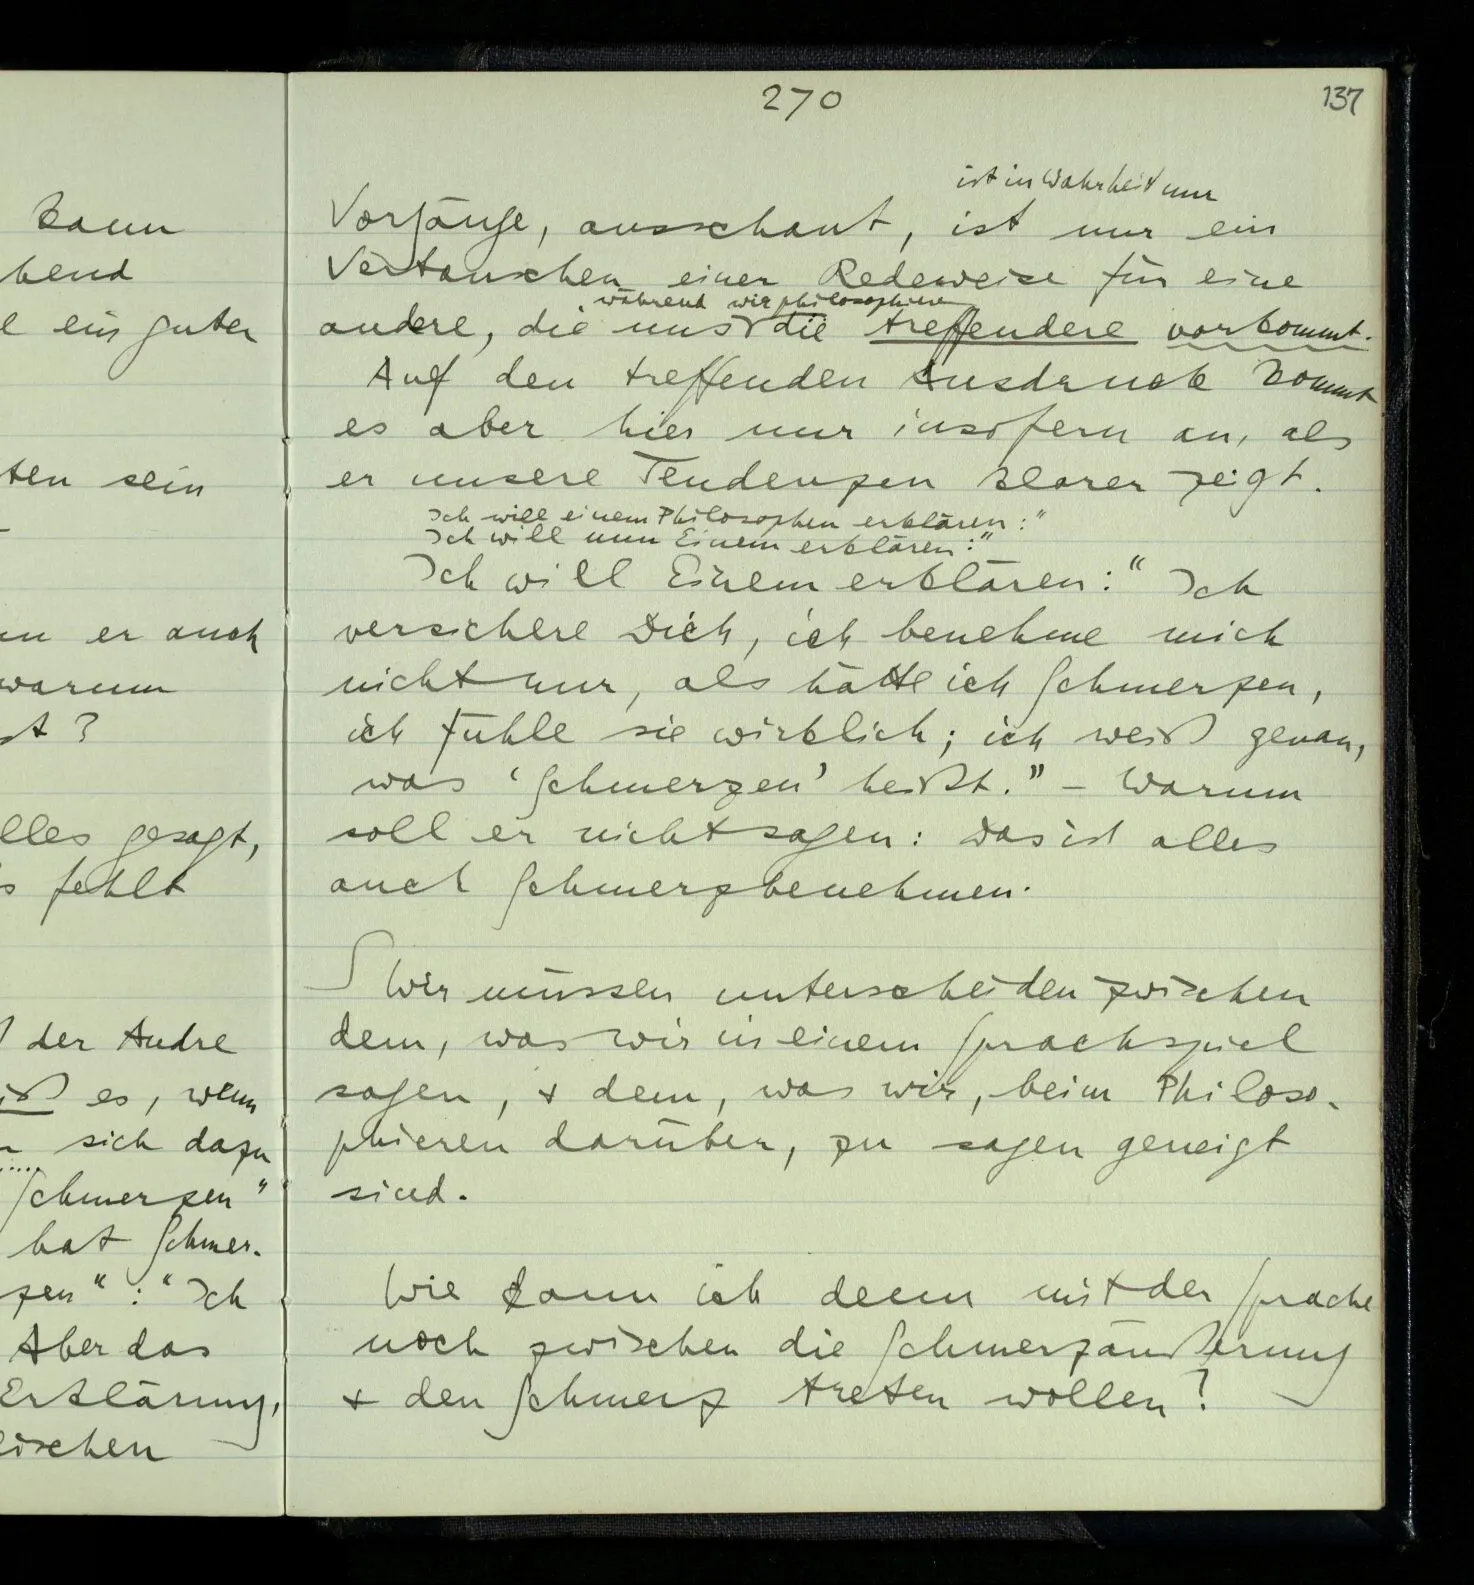 kann
bend
e ein guter
ten sein
nn er auch
warum
st?
lles gesagt,
s fehlt
der Andre
iß es, wenn
sich dazu
Schmerzen"
hat Schmer-
zen": "Ich
Aber das
Erklärung,
ischen
270
137
ist in Wahrheit nur
Vorgänge, ausschaut, ist nur ein
Vertauschen einer Redeweise für eine
während wir philosophieren
andere, die uns die treffendere vorkommt.
Auf den treffenden Ausdruck kommt
es aber hier nur insofern an, als
er unsere Tendenzen klarer zeigt.
Ich will einem Philosophen erklären:"
Ich will nun Einem erklären:"
Ich will Einem erklären:" Ich
versichere Dich, ich benehme mich
nicht nur, als hätte ich Schmerzen,
ich fühle sie wirklich; ich weiß genau,
was 'Schmerzen' heißt." – Warum
soll er nicht sagen: Das ist alles
auch Schmerzbenehmen.
∫ Wir müssen unterscheiden zwischen
dem, was wir in einem Sprachspiel
sagen, & dem, was wir, beim Philoso-
phieren darüber, zu sagen geneigt
sind.
Wie kann ich denn mit der Sprache
noch zwischen die Schmerzäußerung
& den Schmerz treten wollen?